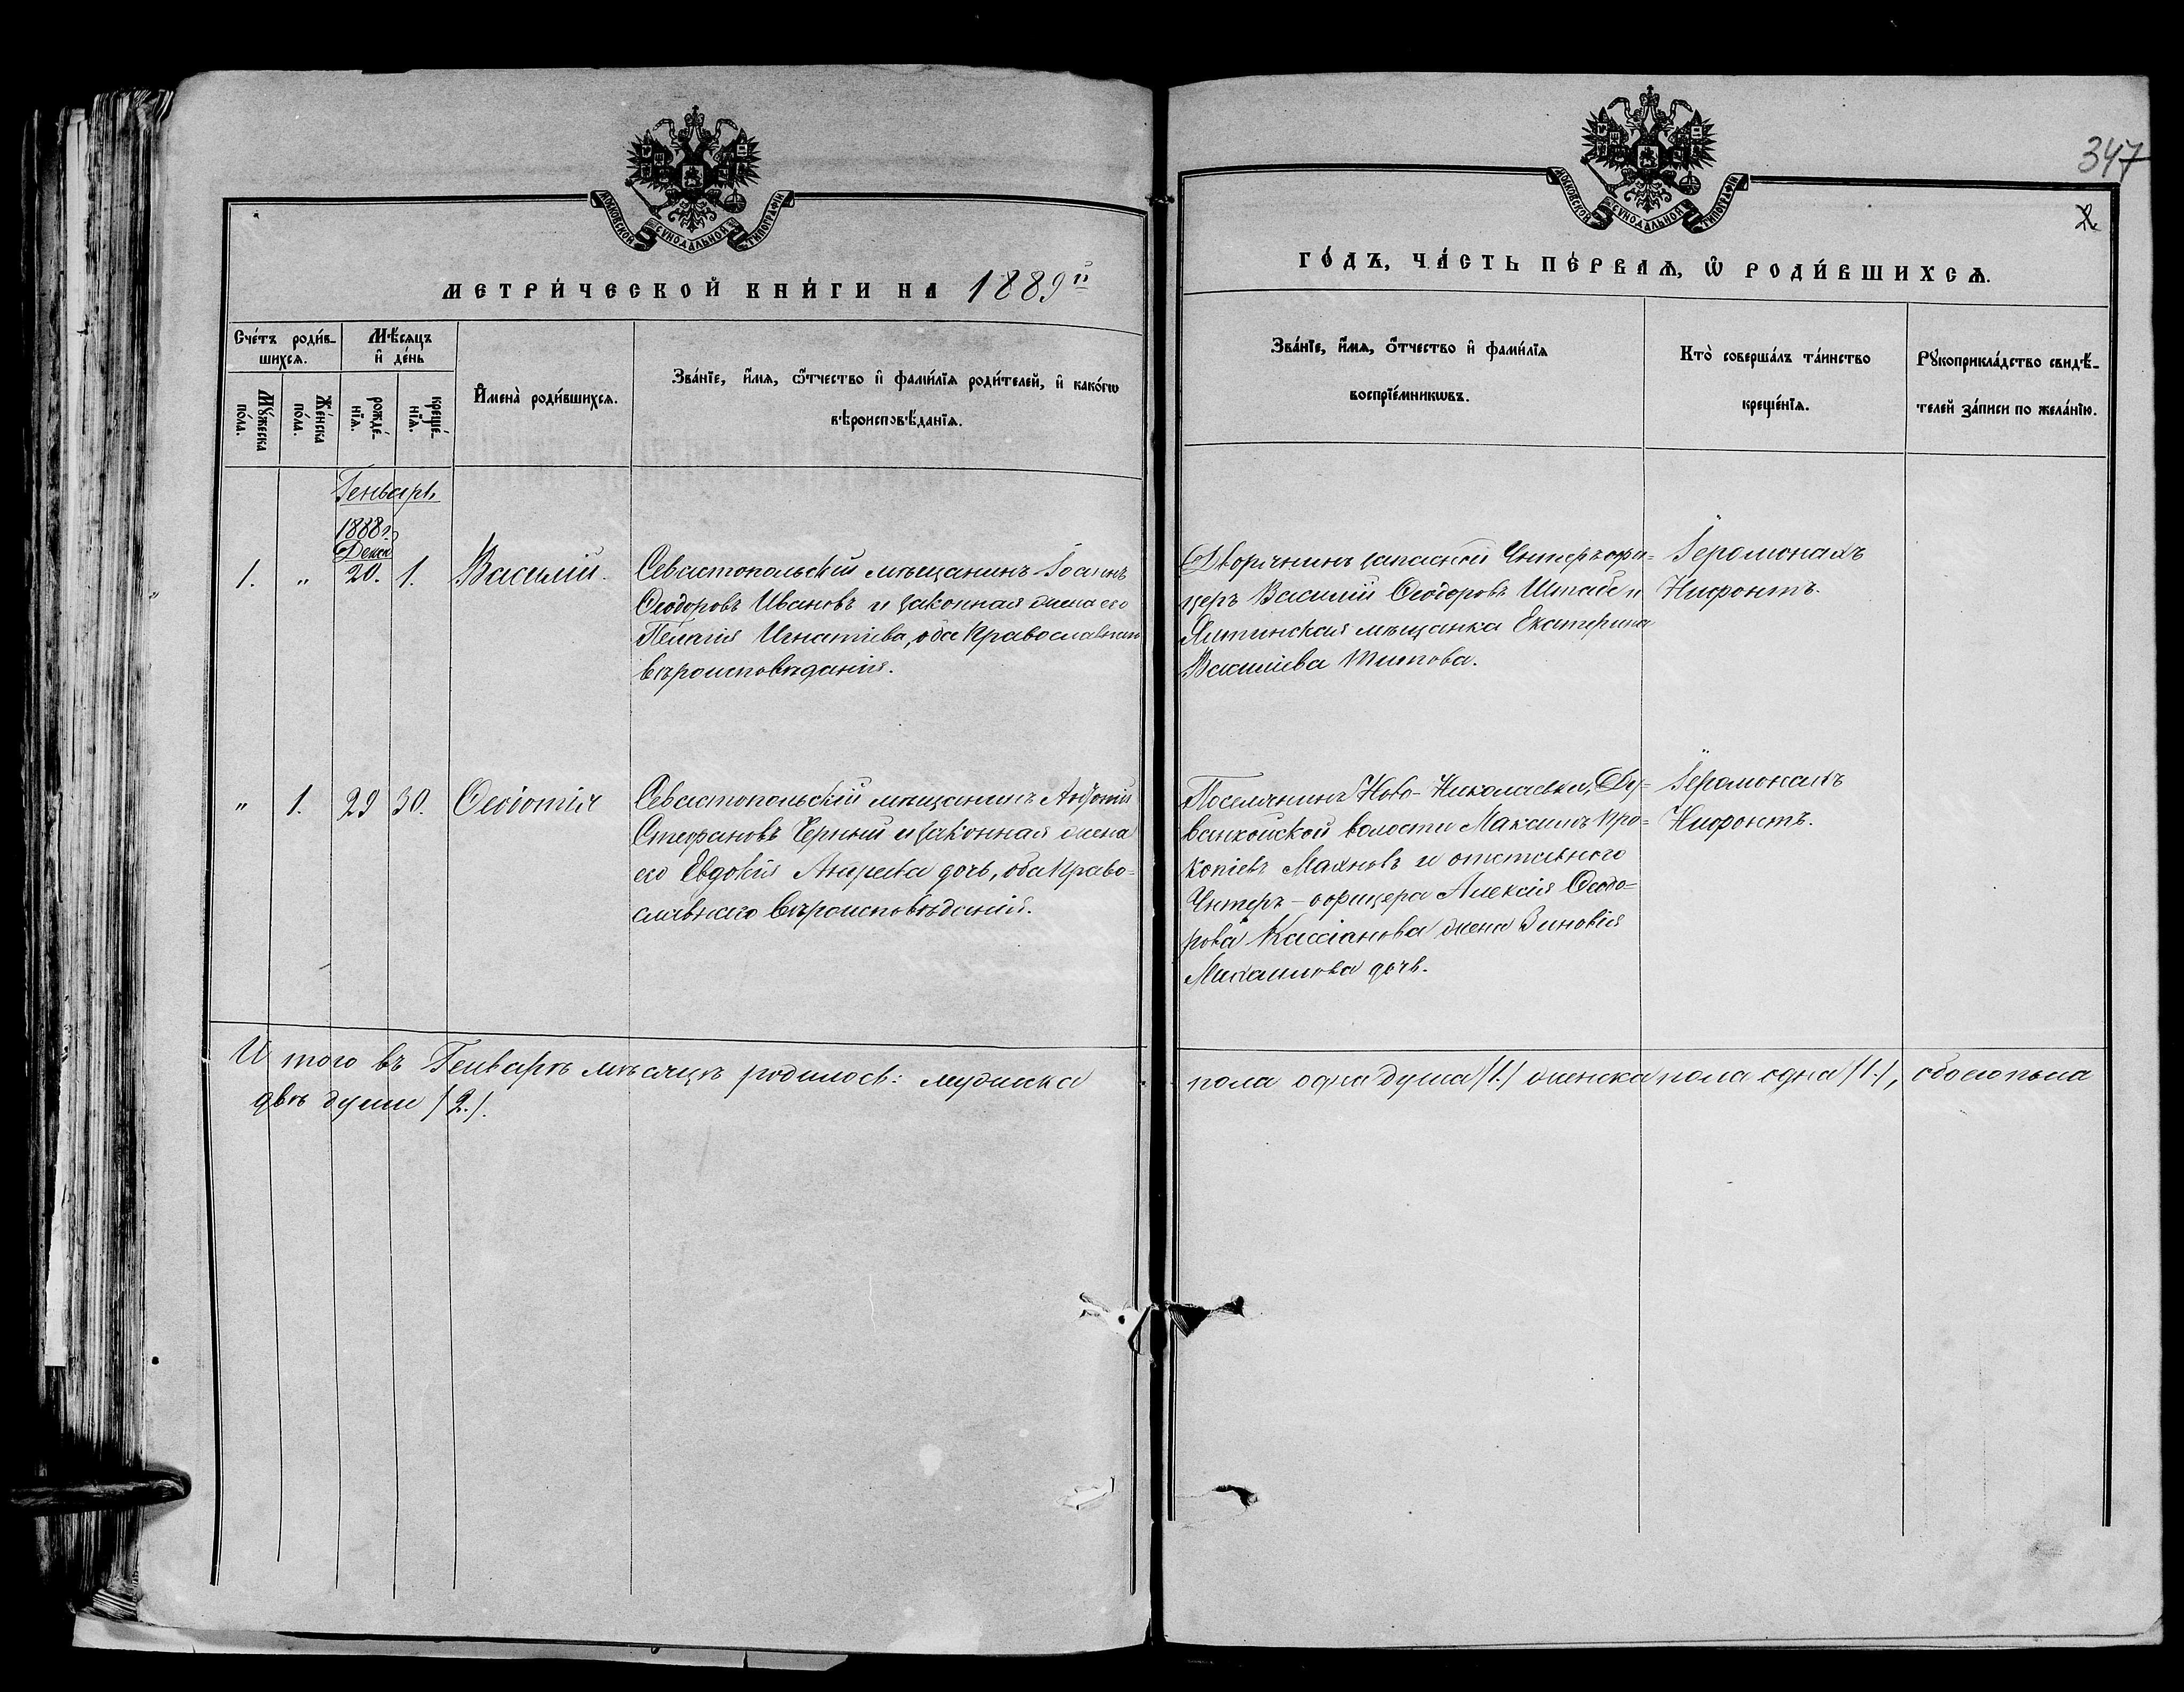 347
2
МОСКОВСКОЙ СѴНОДАЛЬНОЙ ТИПОГРАФІИ
МОСКОВСКОЙ СѴНОДАЛЬНОЙ ТИПОГРАФІИ
МЕТРИ́ЧЕСКОЙ КНИ́ГИ НА 1889й
ГО́ДЪ, ЧА́СТЬ ПЕ́РВАѦ, Ѡ РОДИ́ВШИХСѦ.
Сче́тъ роди́в-
шихсѧ.
Мѣ́сѧцъ
и҆ де́нь
Му́жеска
по́ла.
Же́нска
по́ла.
рожде́-
нїѧ.
креще́-
нїѧ.
И҆мена̀ роди́вшихсѧ.
Зва́нїе, и҆́мѧ, ѻ҆́тчество и҆ фами́лїѧ роди́телей, и҆ како́гѡ
вѣроисповѣ́данїѧ.
Зва́нїе, и҆́мѧ, ѻ҆́тчество и҆ фами́лїѧ
воспрїе́мникѡвъ.
Кто̀ соверша́лъ та́инство
креще́нїѧ.
Рꙋкоприкла́дство свидѣ́-
телей за́писи по жела́нїю.
Генварь
1888 г.
Декаб
1. „ 20. 1. Василій.
Севастопольскій мѣщанинъ Іоаннъ
Ѳеодоровъ Ивановъ и законная жена его
Пелагія Игнатіева, оба Православнаго
вѣроисповѣданія.
Дворянинъ запасной Унтеръ офи-
церъ Василій Ѳеодоровъ Штабе и
Ялтинская мѣщанка Екатерина
Василіева Титова.
Іеромонахъ
Нифонтъ.
„ 1. 29 30. Ѳеодотія
Севастопольскій мѣщанинъ
Стефановъ Черный и законная жена
его Евдокія Андреева дочь, оба Право-
славнаго вѣроисповѣданія.
Поселянинъ Ново-Николаевки, Ду-
ванкойской волости Максимъ Про-
копіевъ Махновъ и отставного
Унтеръ-офицера Алексія Ѳеодо-
рова Кассіанова жена Зиновія
Михаилова дочь.
Іеромонахъ
Нифонтъ.
И того въ Генварѣ мѣсяцѣ родилось: мужска пола одна душа /1./ женска пола одна /1./, обоего пола
двѣ души /2./.